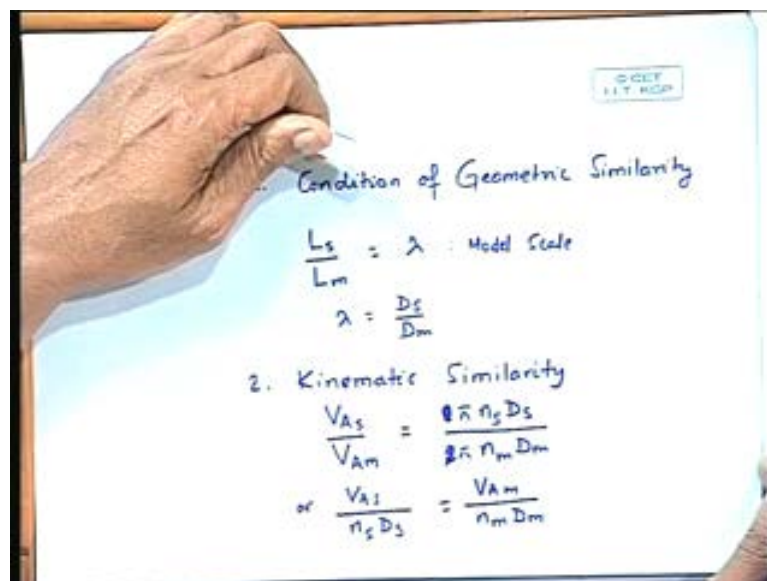 © CET
I.I.T. KGP
Condition of Geometric Similarity
Ls/Lm = λ : Model Scale
λ = Ds/Dm
2. Kinematic Similarity
VAs/VAm = π ns Ds/π nm Dm
or VAs/ns Ds = VAm/nm Dm